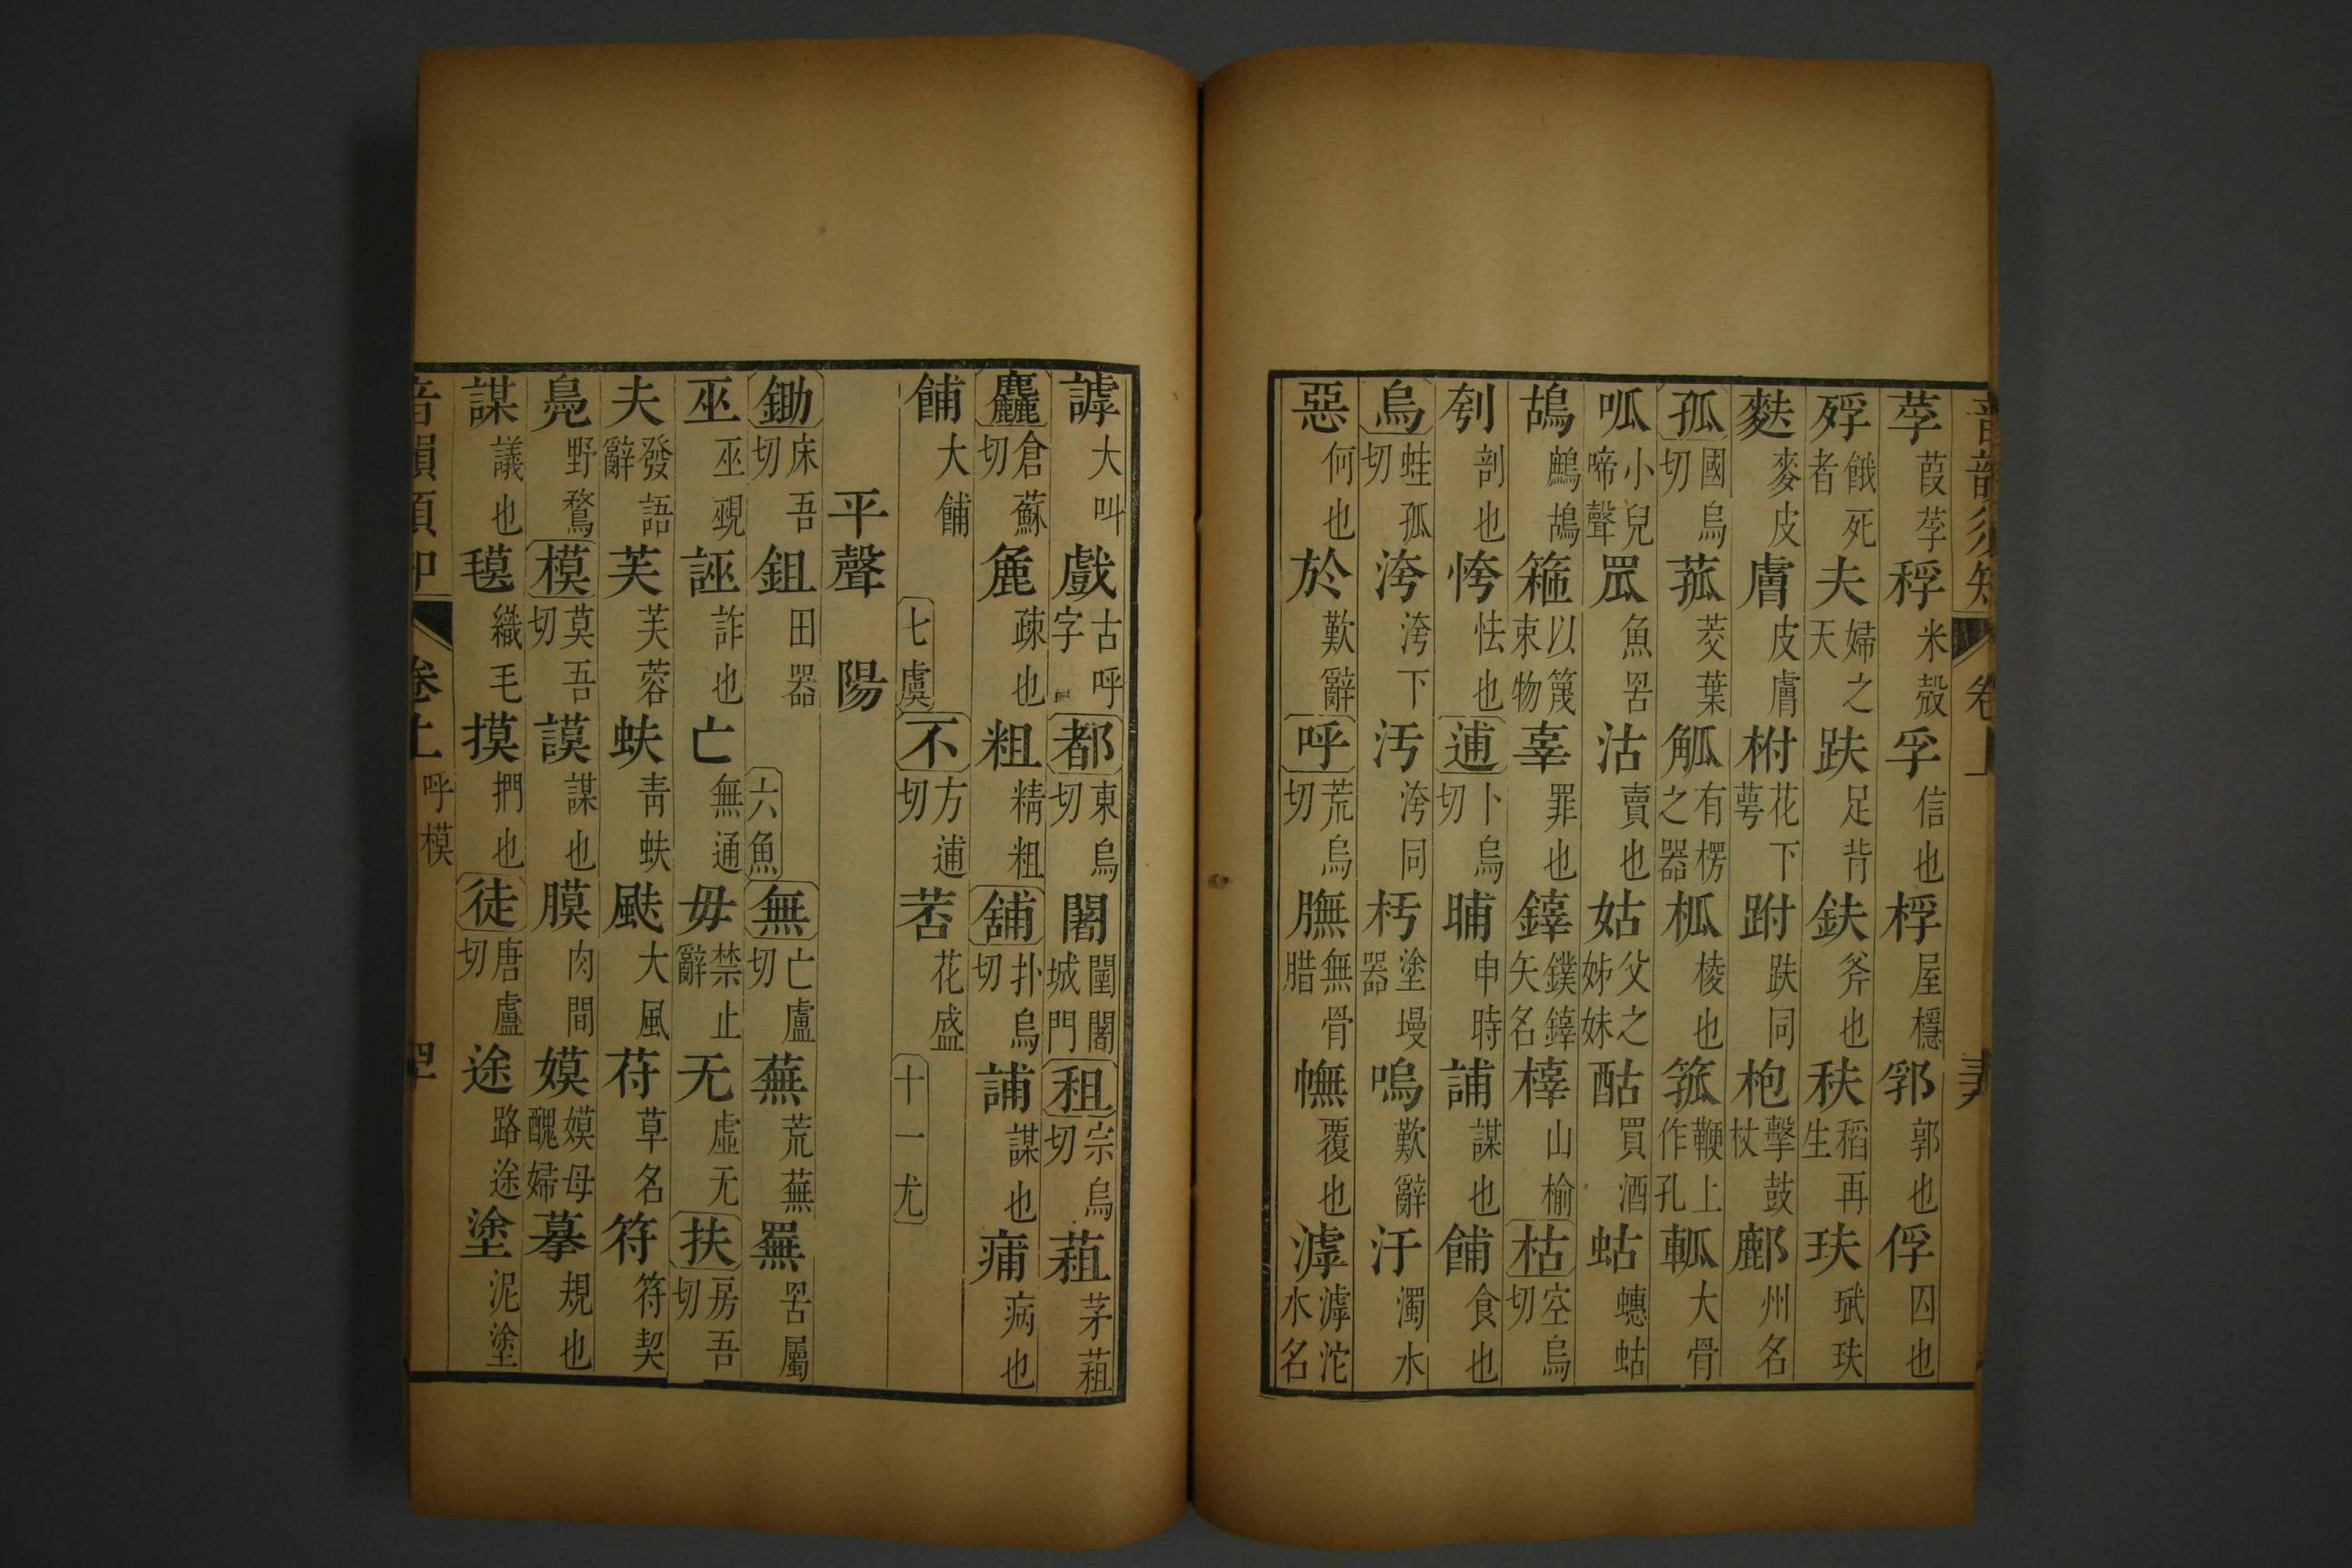 音韻須知 卷上
莩葭莩稃米殼孚信也桴屋穩郛郭也俘囚也
殍餓死者夫婦之天趺足背鈇斧也秩稻再生玞珷玞
麩麥皮膚皮膚柎花下萼跗趺同枹擊鼓杖鄜州名
孤國烏切菰茭葉觚有楞之器柧棱也箛鞭上作孔軱大骨
呱小兒啼聲罛魚罟沽賣也姑父之姊妹酤買酒蛄蟪蛄
鴣鷓鴣箍以篾束物辜罪也鏵鏷鏵矢名榫山榆枯空烏切
刳剖也恗怯也逋卜烏切晡申時誧謀也餔食也
烏蛙孤切洿洿下污洿同杇塗墁器嗚歎辭汙濁水
惡何也於歎辭呼荒烏切膴無骨腊幠覆也滹滹沱水名
謼大叫戲古呼字都東烏切闍闉闍城門租宗烏切蒩茅蒩
麤倉蘇切麁疎也粗精粗舖扑烏切誧謀也痡病也
餔大餔七虞不方逋切芣花盛十一尤
平聲陽
鋤床吾切鉏田器六魚無亡盧切蕪荒蕪䍢罟屬
巫巫覡誣詐也亡無通毋禁止辭无虛无扶房吾切
夫發語辭芙芙蓉蚨青蚨颫大風苻草名符符契
鳧野鶩模莫吾切謨謀也膜肉間嫫嫫母醜婦摹規也
謀議也氁織毛摸捫也徒唐盧切途路途塗泥塗
音韻須知 卷上 呼模 四